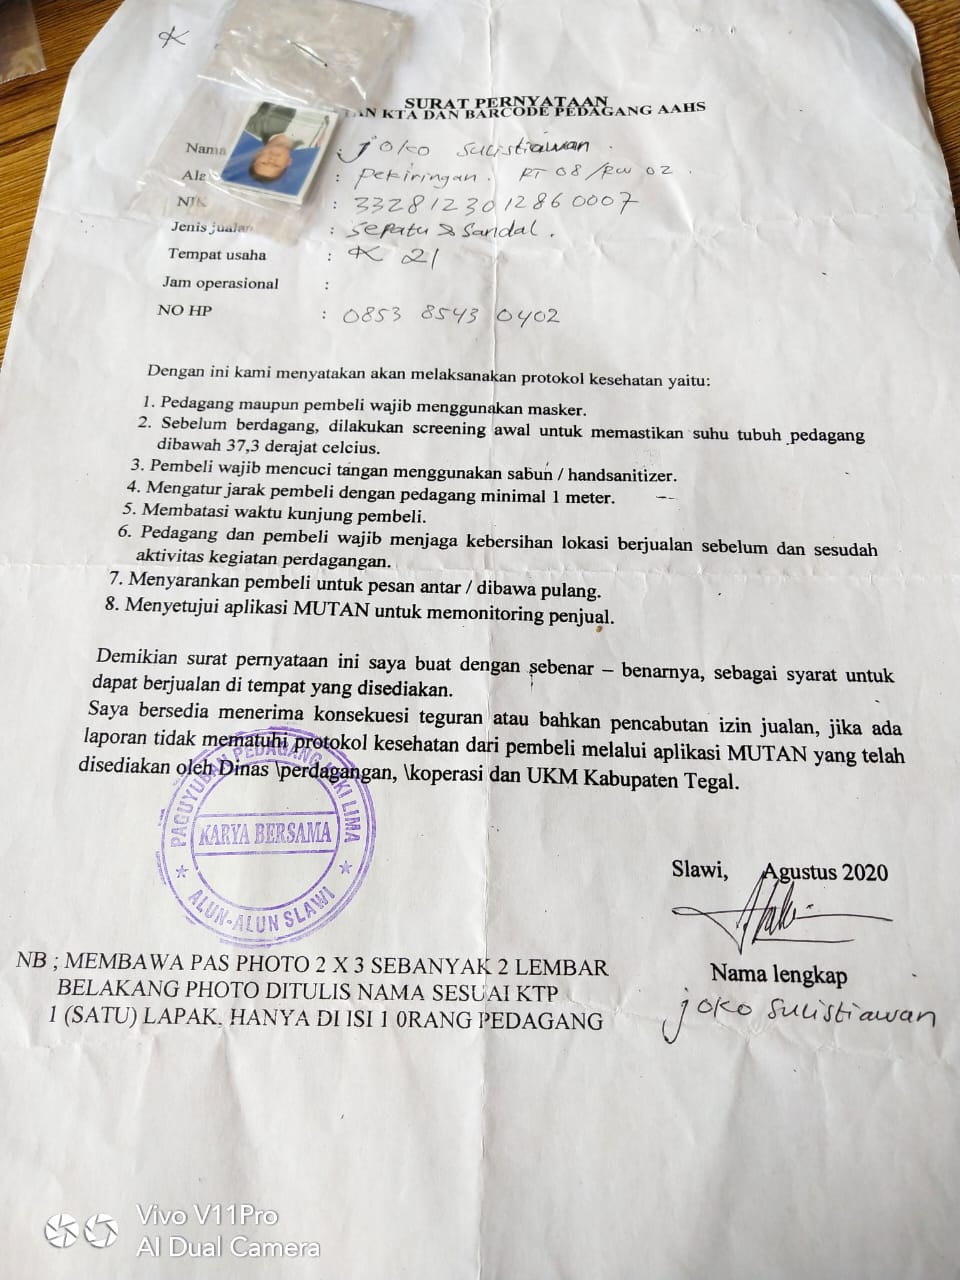 K
SURAT PERNYATAAN
KTA DAN BARCODE PEDAGANG AAHS
Nama : joko sulistiawan.
: Pekiringan. RT 08/RW 02.
NIK : 3328123012860007
Jenis jualan : sepatu & sandal.
Tempat usaha : K 21
Jam operasional :
NO HP : 0853 8543 0402
Dengan ini kami menyatakan akan melaksanakan protokol kesehatan yaitu:
1. Pedagang maupun pembeli wajib menggunakan masker.
2. Sebelum berdagang, dilakukan screening awal untuk memastikan suhu tubuh pedagang
dibawah 37,3 derajat celcius.
3. Pembeli wajib mencuci tangan menggunakan sabun / handsanitizer.
4. Mengatur jarak pembeli dengan pedagang minimal 1 meter.
5. Membatasi waktu kunjung pembeli.
6. Pedagang dan pembeli wajib menjaga kebersihan lokasi berjualan sebelum dan sesudah
aktivitas kegiatan perdagangan.
7. Menyarankan pembeli untuk pesan antar / dibawa pulang.
8. Menyetujui aplikasi MUTAN untuk memonitoring penjual.
Demikian surat pernyataan ini saya buat dengan sebenar – benarnya, sebagai syarat untuk
dapat berjualan di tempat yang disediakan.
Saya bersedia menerima konsekuesi teguran atau bahkan pencabutan izin jualan, jika ada
laporan tidak mematuhi protokol kesehatan dari pembeli melalui aplikasi MUTAN yang telah
disediakan oleh Dinas \perdagangan, \koperasi dan UKM Kabupaten Tegal.
PAGUYUBAN PEDAGANG KAKI LIMA
KARYA BERSAMA
ALUN-ALUN SLAWI
Slawi, Agustus 2020
Nama lengkap
joko sulistiawan
NB ; MEMBAWA PAS PHOTO 2 X 3 SEBANYAK 2 LEMBAR
BELAKANG PHOTO DITULIS NAMA SESUAI KTP
1 (SATU) LAPAK, HANYA DI ISI 1 0RANG PEDAGANG
Vivo V11Pro
AI Dual Camera